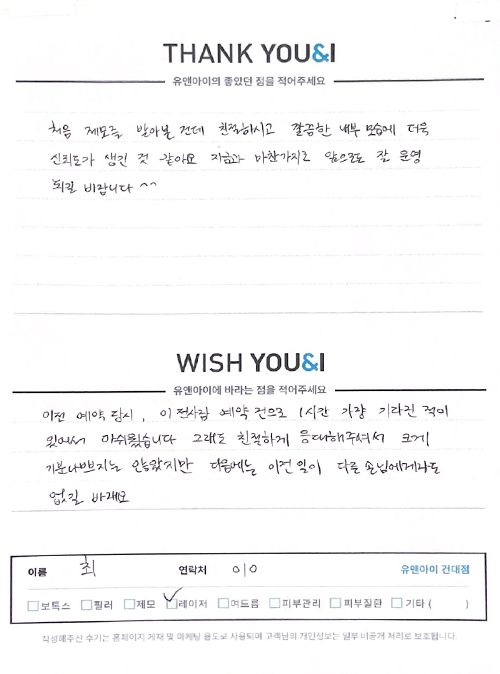 THANK YOU&I
유앤아이의 좋았던 점을 적어주세요
처음 제모를 받아본 건데 친절하시고 깔끔한 내부 모습에 더욱
신뢰도가 생긴 것 같아요 지금과 마찬가지로 앞으로도 잘 운영
되길 바랍니다 ^^
WISH YOU&I
유앤아이에 바라는 점을 적어주세요
이전 예약 당시, 이 전사람 예약 건으로 1시간 가량 기다린 적이
있어서 아쉬웠습니다 그래도 친절하게 응대해주셔서 크게
기분나쁘지는 않았지만 다음에는 이런일이 다른 손님에게라도
없길 바래요
이름 최 연락처 010 유앤아이 건대점
보톡스 필러 제모 레이저 여드름 피부관리 피부질환 기타 ( )
작성해주신 후기는 홈페이지 게재 및 마케팅 용도로 사용되며 고객님의 개인정보는 일부 비공개 처리로 보호됩니다.